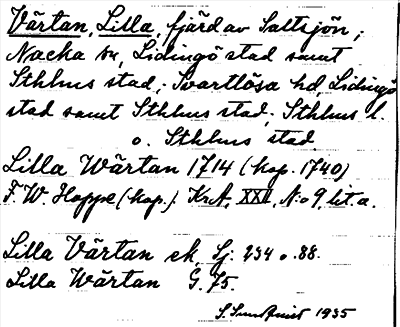 Värtan, Lilla, fjärd av Saltsjön;
Nacka sn, Lidingö stad samt
Sthlms stad; Svartlösa hd, Lidingö
stad samt Sthlms stad; Sthlms l.
o. Sthlms stad
Lilla Wärtan 1714 (kop. 1740)
F. W. Hoppe (kop.). KrA, XXII, N:o 9, lit. a.
Lilla Värtan ek. Lj. 234 o. 88.
Lilla Wärtan G. 75.
S. Sundqvist 1935